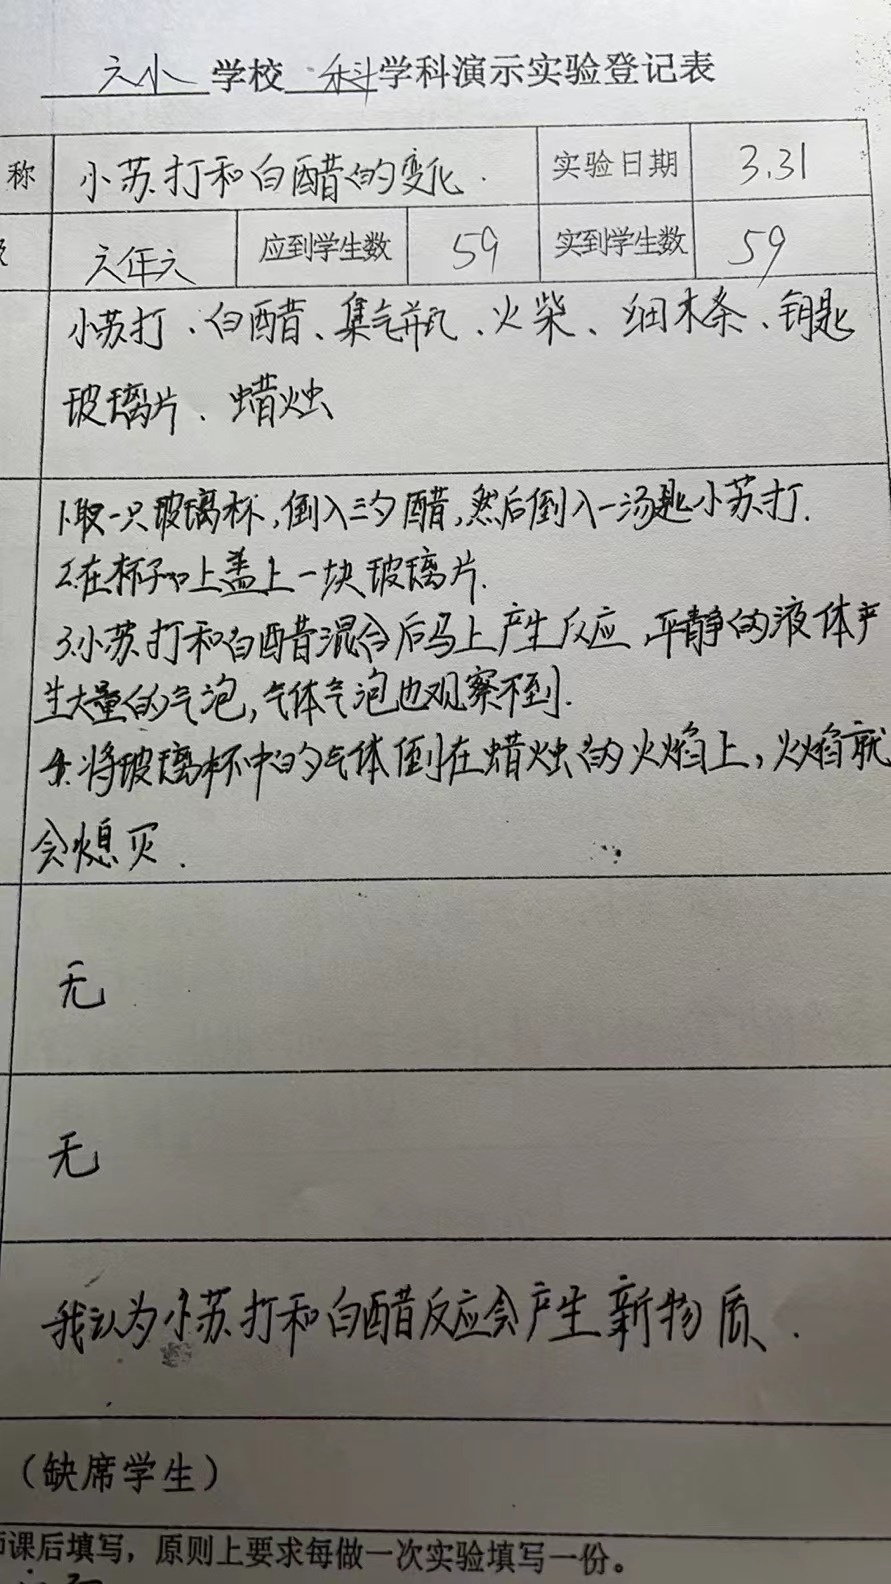 六小 学校 科学科演示实验登记表
称 小苏打和白醋的变化. 实验日期 3.31
六年六 应到学生数 59 实到学生数 59
小苏打、白醋、集气瓶、火柴、细木条、钥匙
玻璃片、蜡烛
1.取一只玻璃杯,倒入三勺醋,然后倒入一汤匙小苏打.
2.在杯子口上盖上一块玻璃片.
3.小苏打和白醋混合后马上产生反应,平静的液体产
生大量的气泡,气体气泡也观察不到.
4.将玻璃杯中的气体倒在蜡烛的火焰上,火焰就
会熄灭.
无
无
我认为小苏打和白醋反应会产生新物质.
(缺席学生)
师课后填写,原则上要求每做一次实验填写一份。